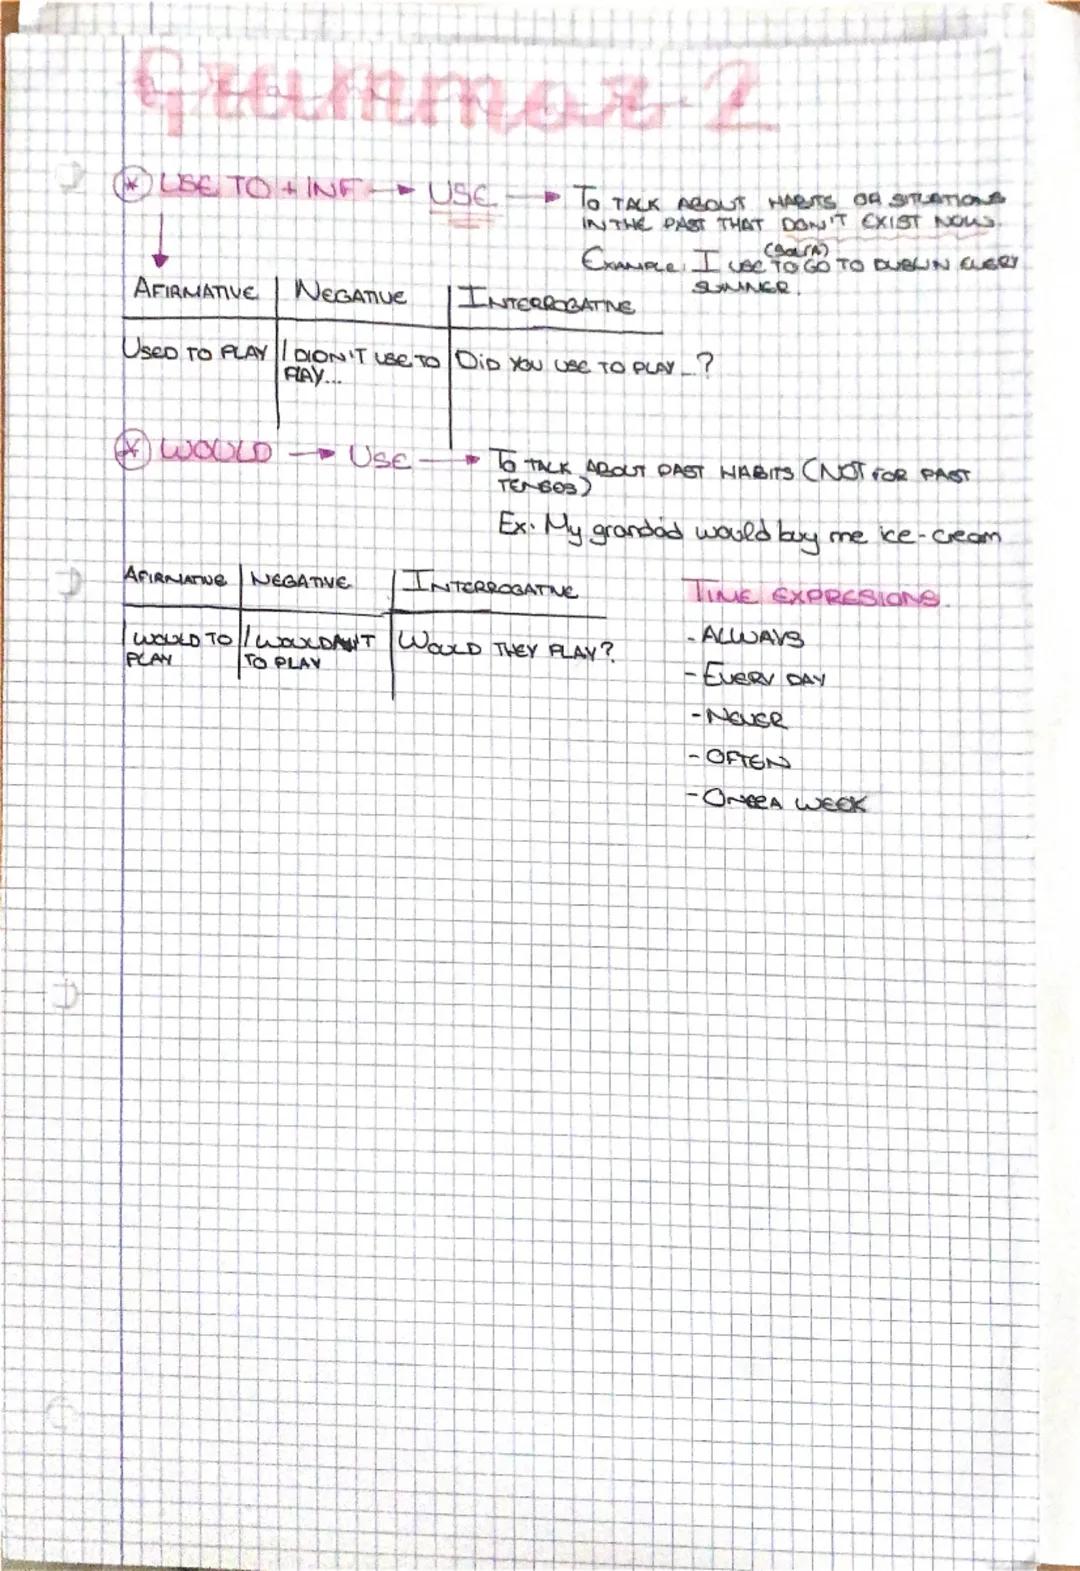 Grammar 2
* USE TO + INF → USE → TO TALK ABOUT HABITS OR SITUATIONS
IN THE PAST THAT DON'T EXIST NOW.
(SOLÍA)
EXAMPLE: I USE TO GO TO DUBLIN EVERY
SUMMER.
AFIRMATIVE NEGATIVE INTERROGATIVE
USED TO PLAY I DIDN'T USE TO DID YOU USE TO PLAY...?
PLAY...
* WOULD → USE → TO TALK ABOUT PAST HABITS (NOT FOR PAST
TENSES)
Ex: My grandad would buy me ice-cream
AFIRMATIVE NEGATIVE INTERROGATIVE
I WOULD TO I WOULDN'T WOULD THEY PLAY?
PLAY TO PLAY
TIME EXPRESIONS.
- ALLWAYS
- EVERY DAY
- NEVER
- OFTEN
- ONCE A WEEK